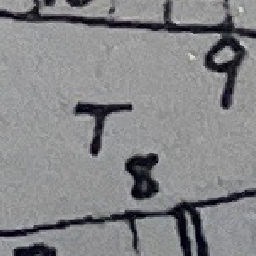 9
T
8